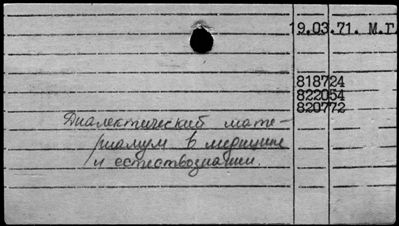 19.03.71. М.Г
818724
822054
820772
Диалектический мате-
риализм в медицине
и естествознании.